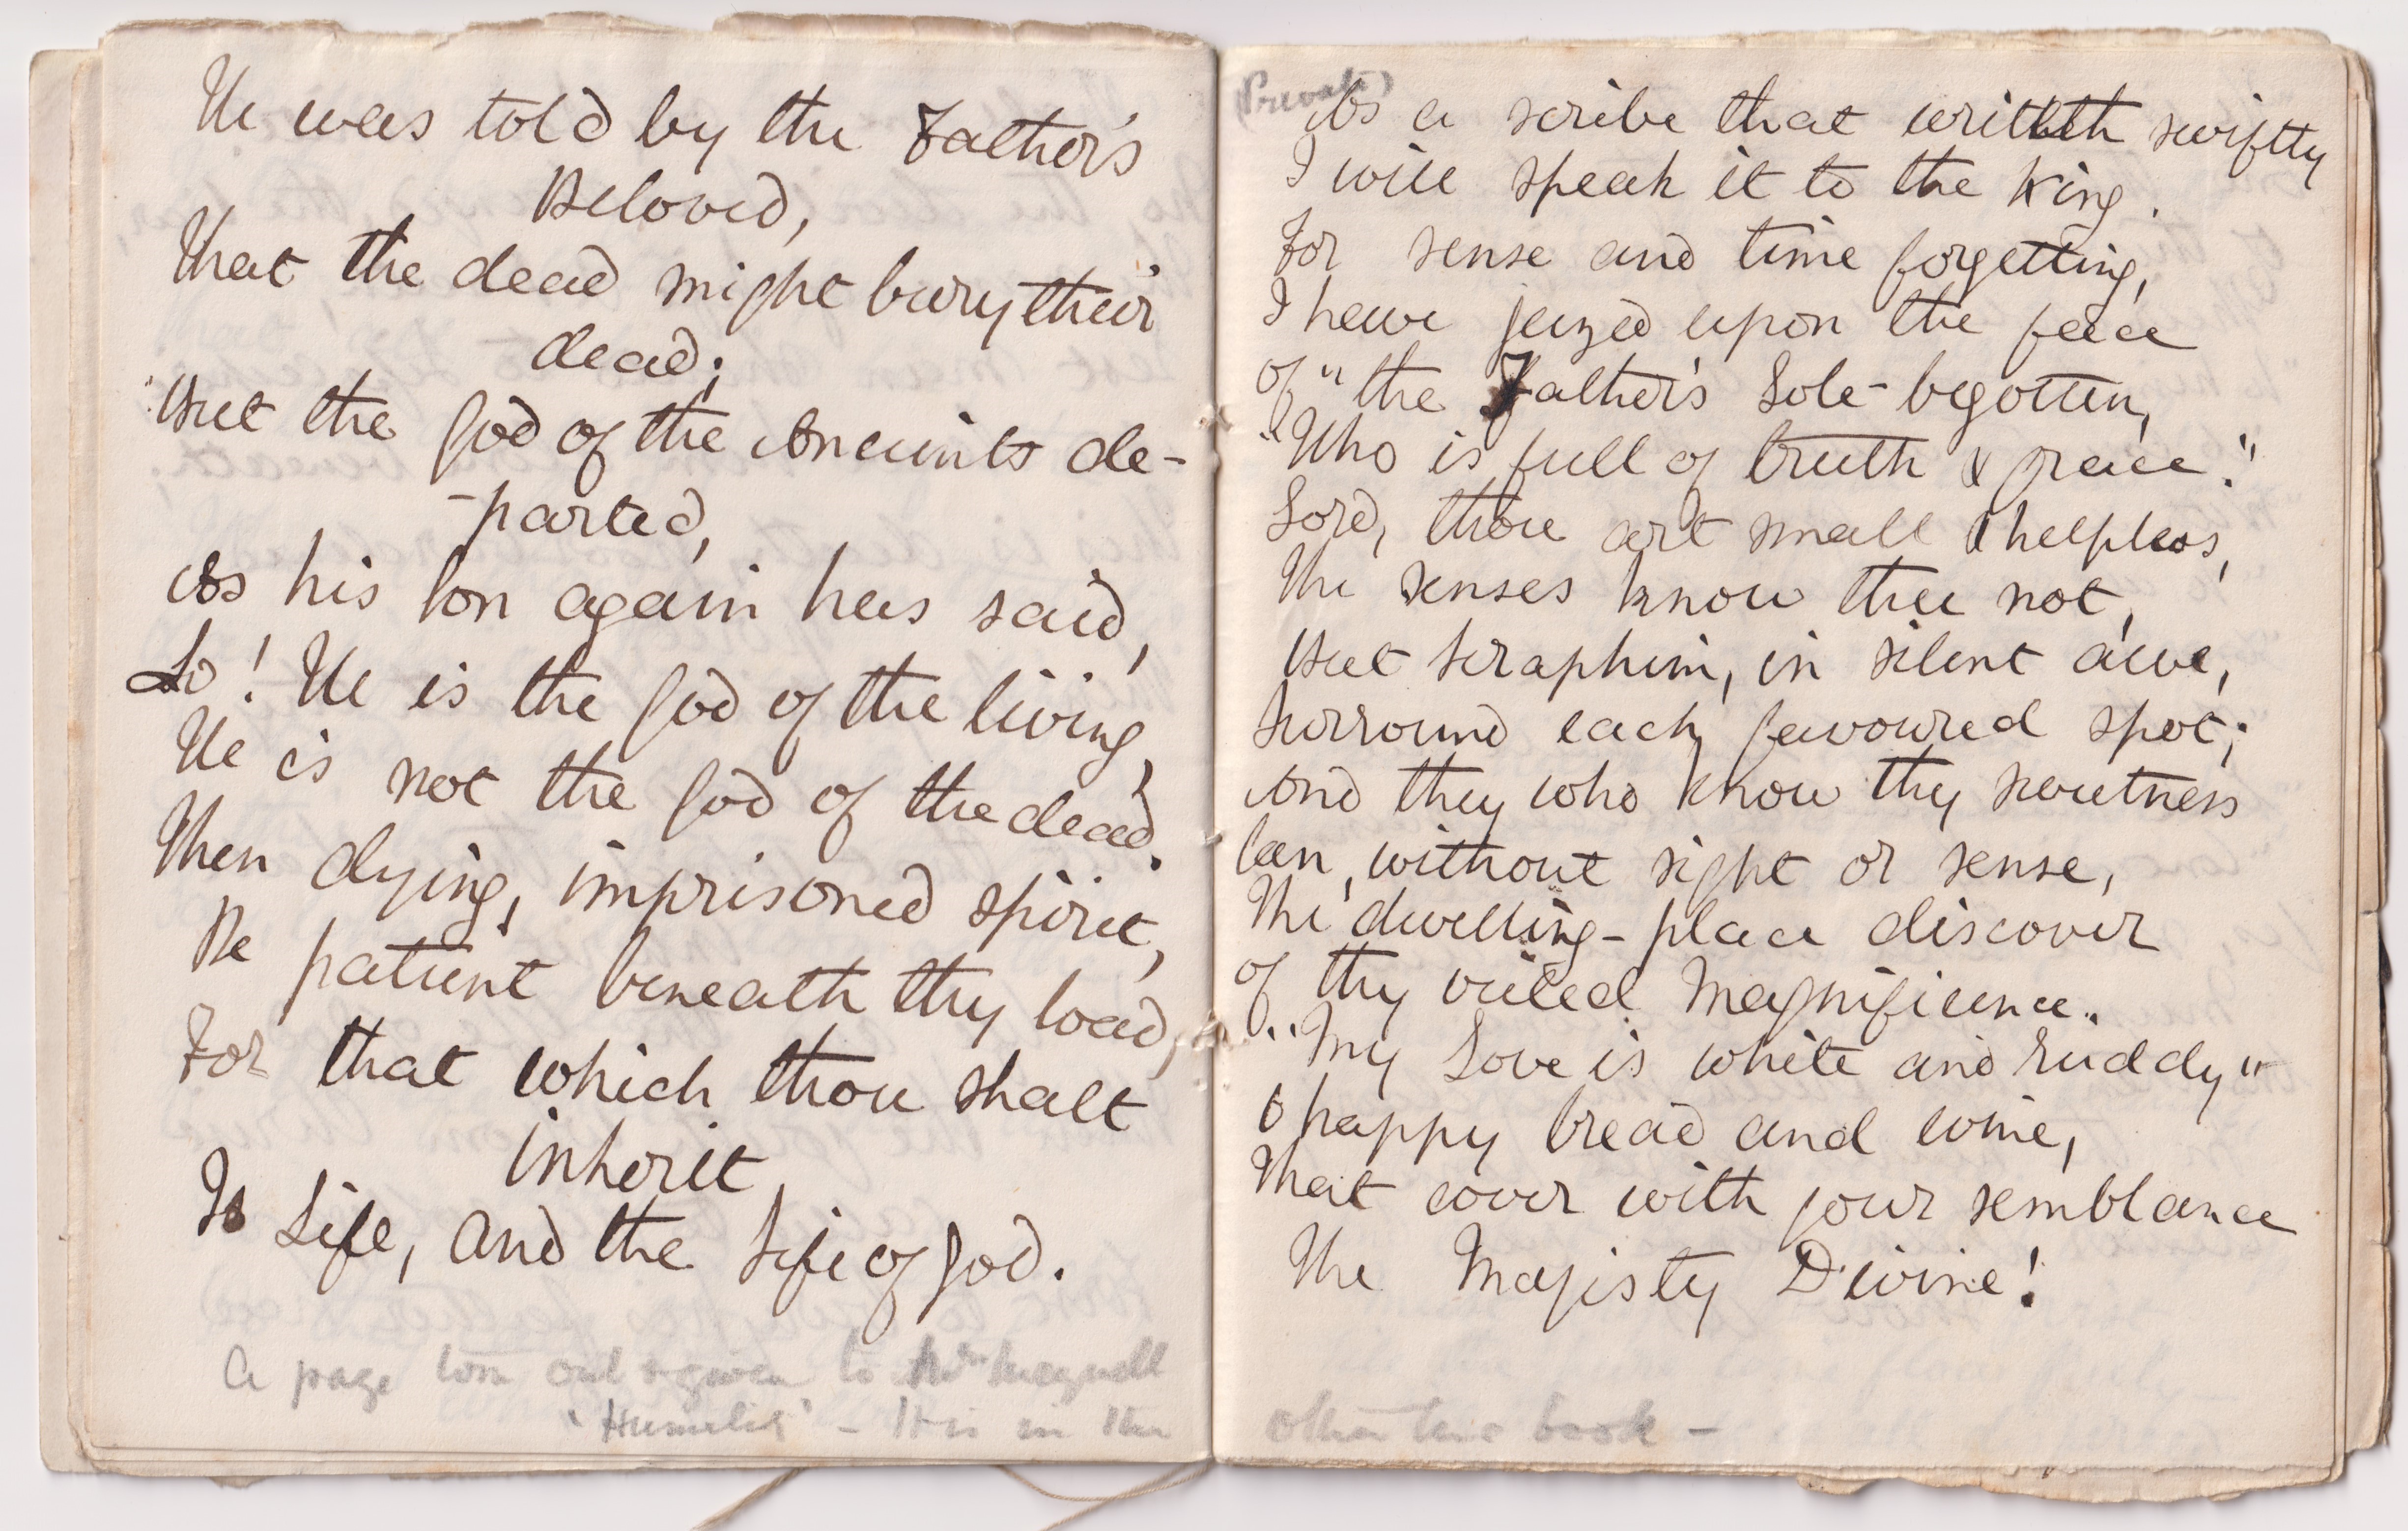 He was told by the Father's
Beloved,
That the dead might bury their
dead;
But the God of the Ancients de-
-parted,
As his Son again has said,
Lo! He is the God of the living,
He is not the God of the dead.
Then dying, imprisoned spirit,
Be patient beneath thy load,
For that which thou shalt
inherit
Is Life, and the Life of God.
A page torn out & given to Mrs Meynell
'Humility' – It is in the
(Private)
As a scribe that writeth swiftly
I will speak it to the King.
For sense and time forgetting,
I have seized upon the face
of "the Father's Sole-begotten,
"Who is full of truth & grace."
Lord, thou art small & helpless,
The senses know thee not,
But Seraphim, in silent awe,
Surround each favoured spot;
And they who know thy sweetness
Can, without sight or sense,
The dwelling-place discover
of thy veiled Magnificence.
"My Love is white and ruddy"
O happy bread and wine,
That cover with your semblance
The Majesty Divine!
other book –